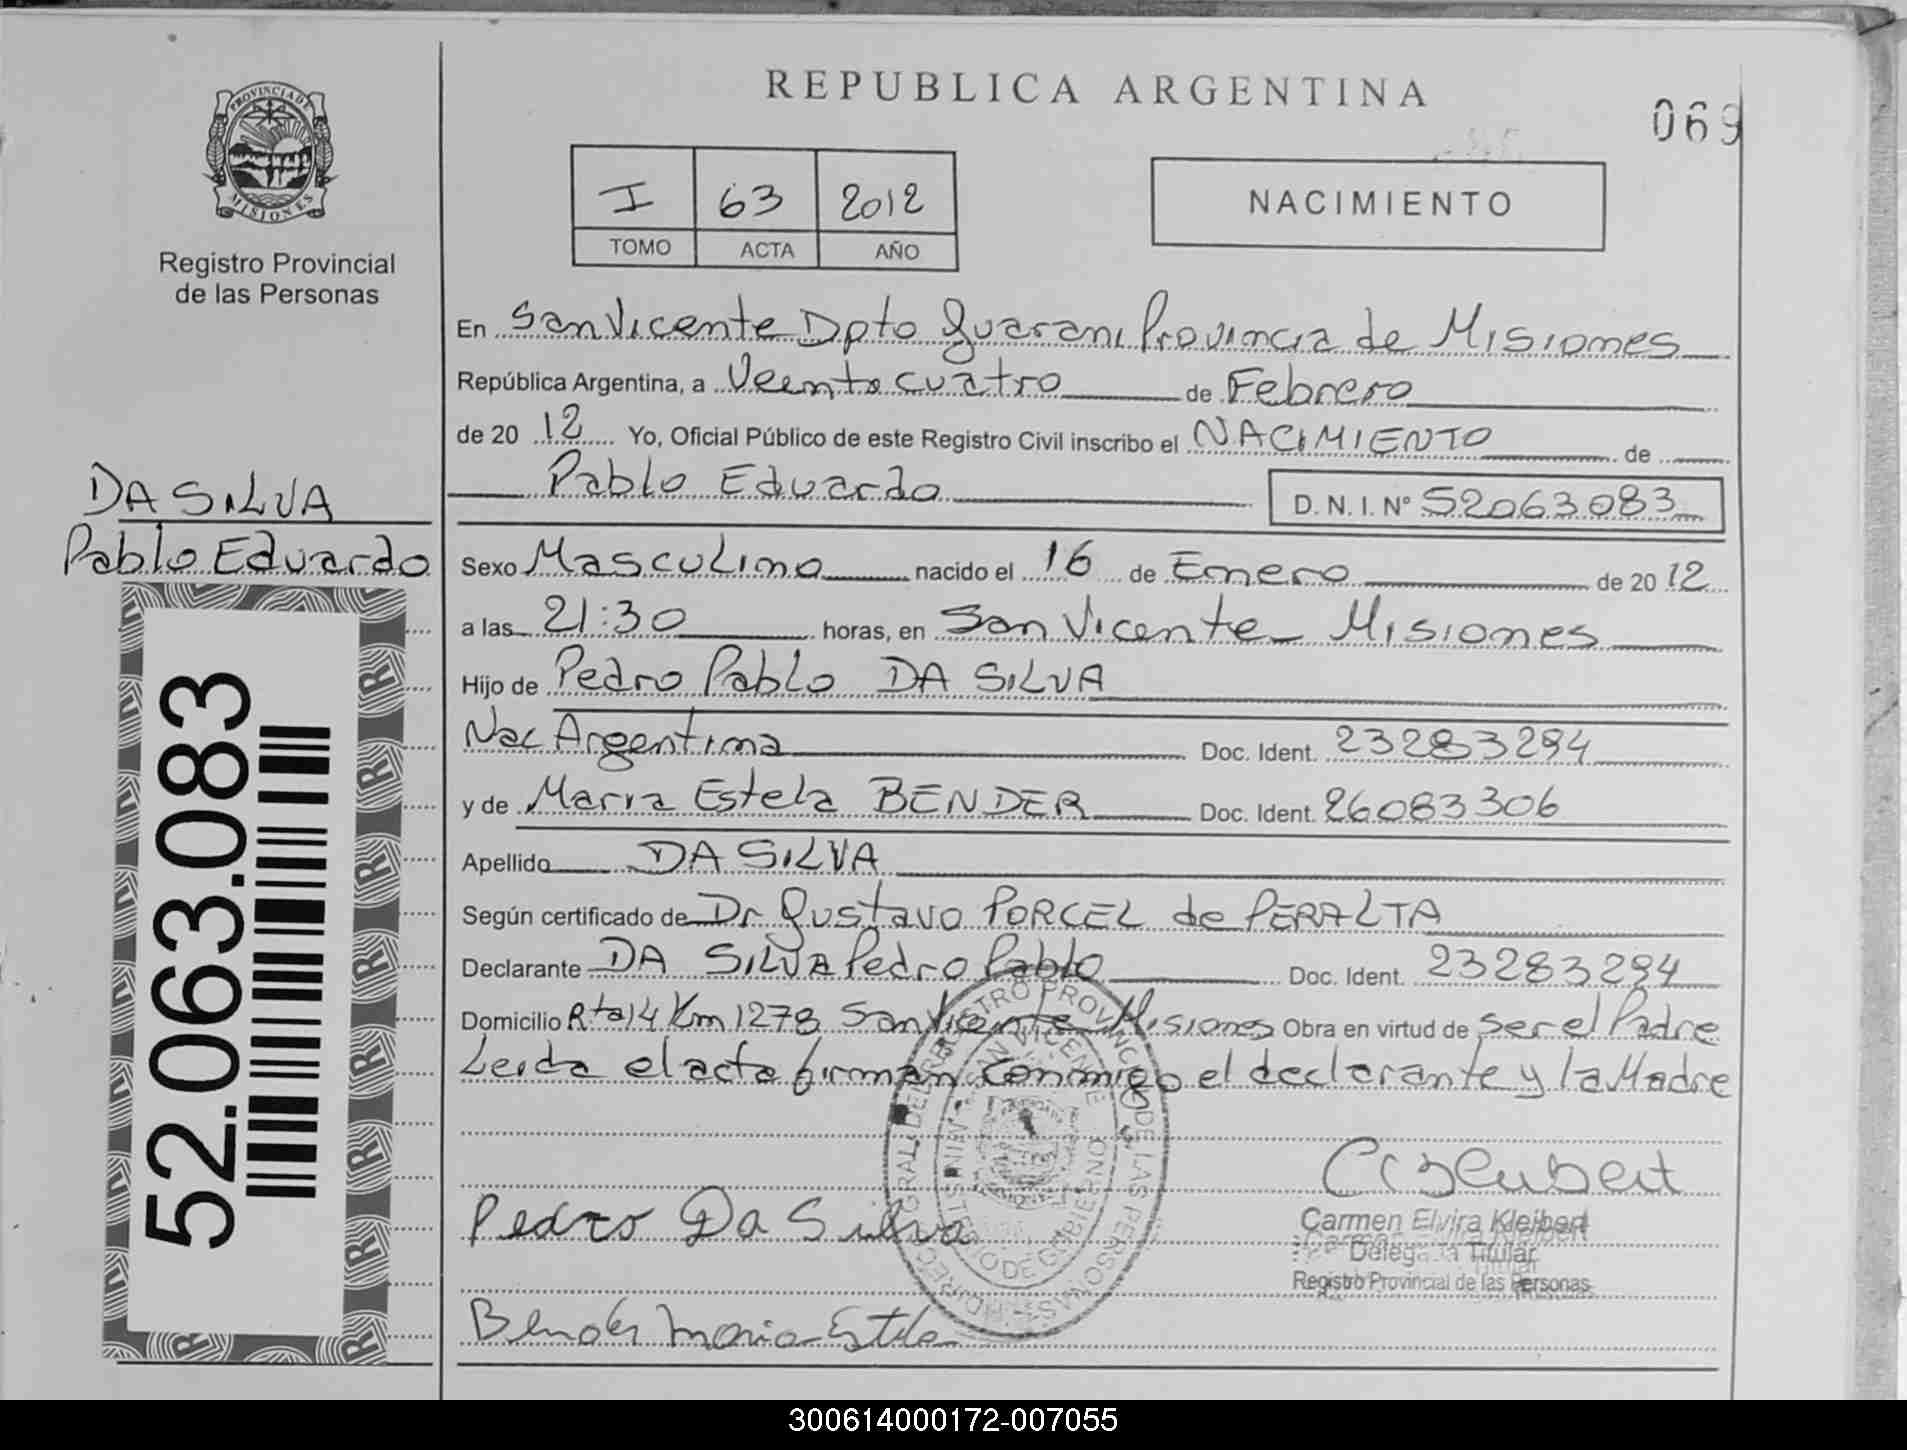 PROVINCIA DE
MISIONES
Registro Provincial
de las Personas
DA SILVA
Pablo Eduardo
52.063.083
REPUBLICA ARGENTINA
069
I 63 2012
TOMO ACTA AÑO
NACIMIENTO
En San Vicente Dpto Guarani Provincia de Misiones
República Argentina, a Veentecuatro de Febrero
de 20 12 Yo, Oficial Público de este Registro Civil inscribo el NACIMIENTO de
Pablo Eduardo D. N. I. Nº 52063083
Sexo Masculino nacido el 16 de Enero de 20 12
a las 21:30 horas, en San Vicente Misiones
Hijo de Pedro Pablo DA SILVA
Nac Argentina Doc. Ident. 23283294
y de Maria Estela BENDER Doc. Ident. 26083306
Apellido DA SILVA
Según certificado de Dr. Gustavo PORCEL de PERALTA
Declarante DA SILVA Pedro Pablo Doc. Ident. 23283294
Domicilio Rta 14 Km 1278 San Vicente Misiones Obra en virtud de ser el Padre
Leida el acta firman conmigo el declarante y la Madre
Pedro Da Silva
Bender Maria Estela
Carmen Elvira Kleibert
Delegada Titular
Registro Provincial de las Personas
300614000172-007055